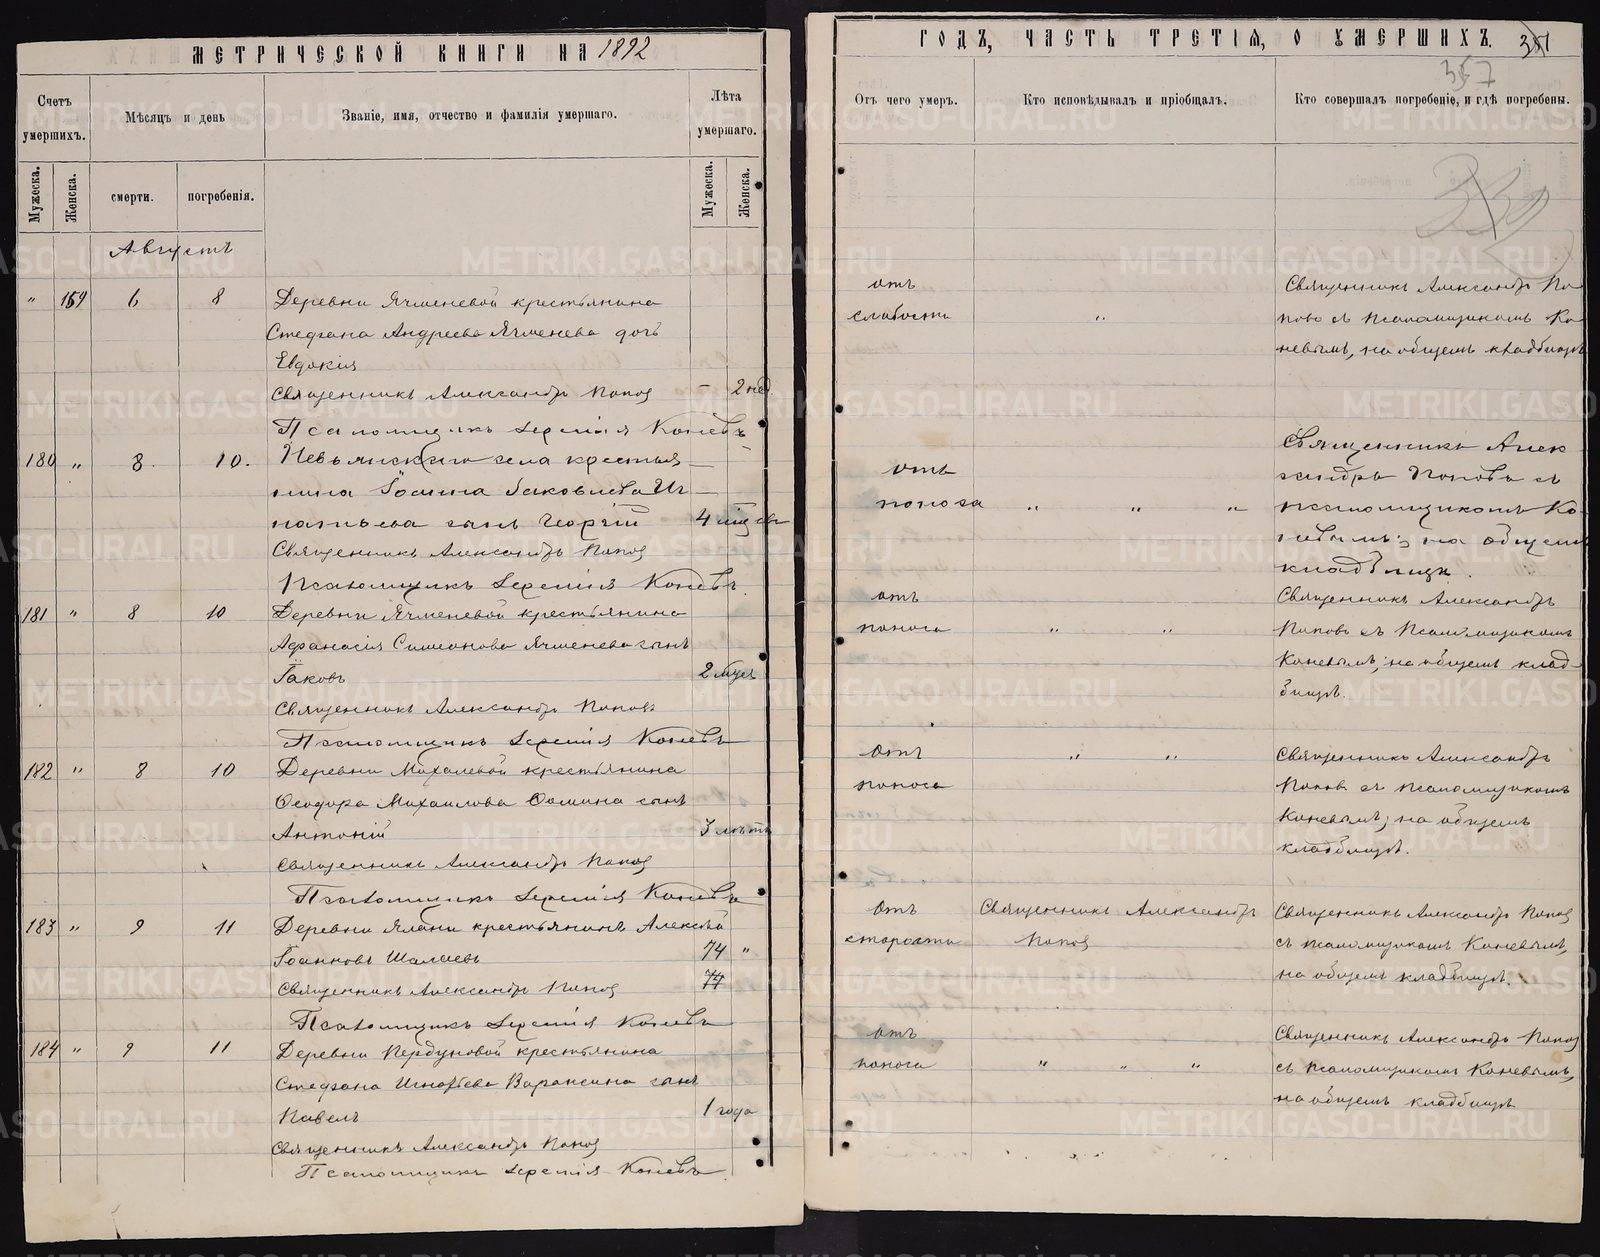 МЕТРИЧЕСКОЙ КНИГИ НА 1892
Счетъ умершихъ.
Мѣсяцъ и день
Званіе, имя, отчество и фамилія умершаго.
Лѣта умершаго.
Мужеска.
Женска.
смерти.
погребенія.
Мужеска.
Женска.
Августъ
" 159 6 8 Деревни Ячменевой крестьянина
Стефана Андреева Ячменева дочь
Евдокія
Священникъ Александръ Поповъ – 2 нед.
Псаломщикъ Іеремія Коневъ
180 " 8. 10. Невьянскаго села крестья
нина Іоанна Іаковлева Иг
натьева сынъ Георгій 4 мѣсяц
Священникъ Александръ Поповъ
Псаломщикъ Іеремія Коневъ.
181 " 8 10 Деревни Ячменевой крестьянина
Афанасія Симеонова Ячменева сынъ
Іаковъ 2 мѣся
Священникъ Александръ Поповъ
Псаломщикъ Іеремія Коневъ
182 " 8 10 Деревни Михалевой крестьянина
Ѳеодора Михаилова Ѳомина сынъ
Антоній 3 лѣтъ
Священникъ Александръ Поповъ
Псаломщикъ Іеремія Коневъ
183 " 9 11 Деревни Ялани крестьянинъ Алексѣй
Іоанновъ Шалаевъ 74 "
Священникъ Александръ Поповъ 77
Псаломщикъ Іеремія Коневъ
184 " 9 11 Деревни
крестьянина
Стефана Игнатьева Вараксина сынъ
Павелъ 1 года
Священникъ Александръ Поповъ
Псаломщикъ Іеремія Коневъ.
ГОДЪ, ЧАСТЬ ТРЕТІЯ, О УМЕРШИХЪ.
357
Отъ чего умеръ.
Кто исповѣдывалъ и пріобщалъ.
Кто совершалъ погребеніе, и гдѣ погребены.
отъ Священникъ Александръ По
слабости " повъ съ псаломщикомъ Ко
невымъ, на общемъ кладбищѣ
Священникъ Алек
отъ сандръ Поповъ съ
поноса " " " псаломщикомъ Ко
невымъ; на общемъ
кладбищѣ.
отъ Священникъ Александръ
поноса " " Поповъ съ псаломщикомъ
Коневымъ; на общемъ клад
бищѣ.
отъ " " Священникъ Александръ
поноса Поповъ съ псаломщикомъ
Коневымъ; на общемъ
кладбищѣ.
отъ Священникъ Александръ Священникъ Александръ Поповъ
старости Поповъ съ псаломщикомъ Коневымъ,
на общемъ кладбищѣ.
отъ Священникъ Александръ Поповъ
поноса " " " съ псаломщикомъ Коневымъ,
на общемъ кладбищѣ
METRIKI.GASO-URAL.RU